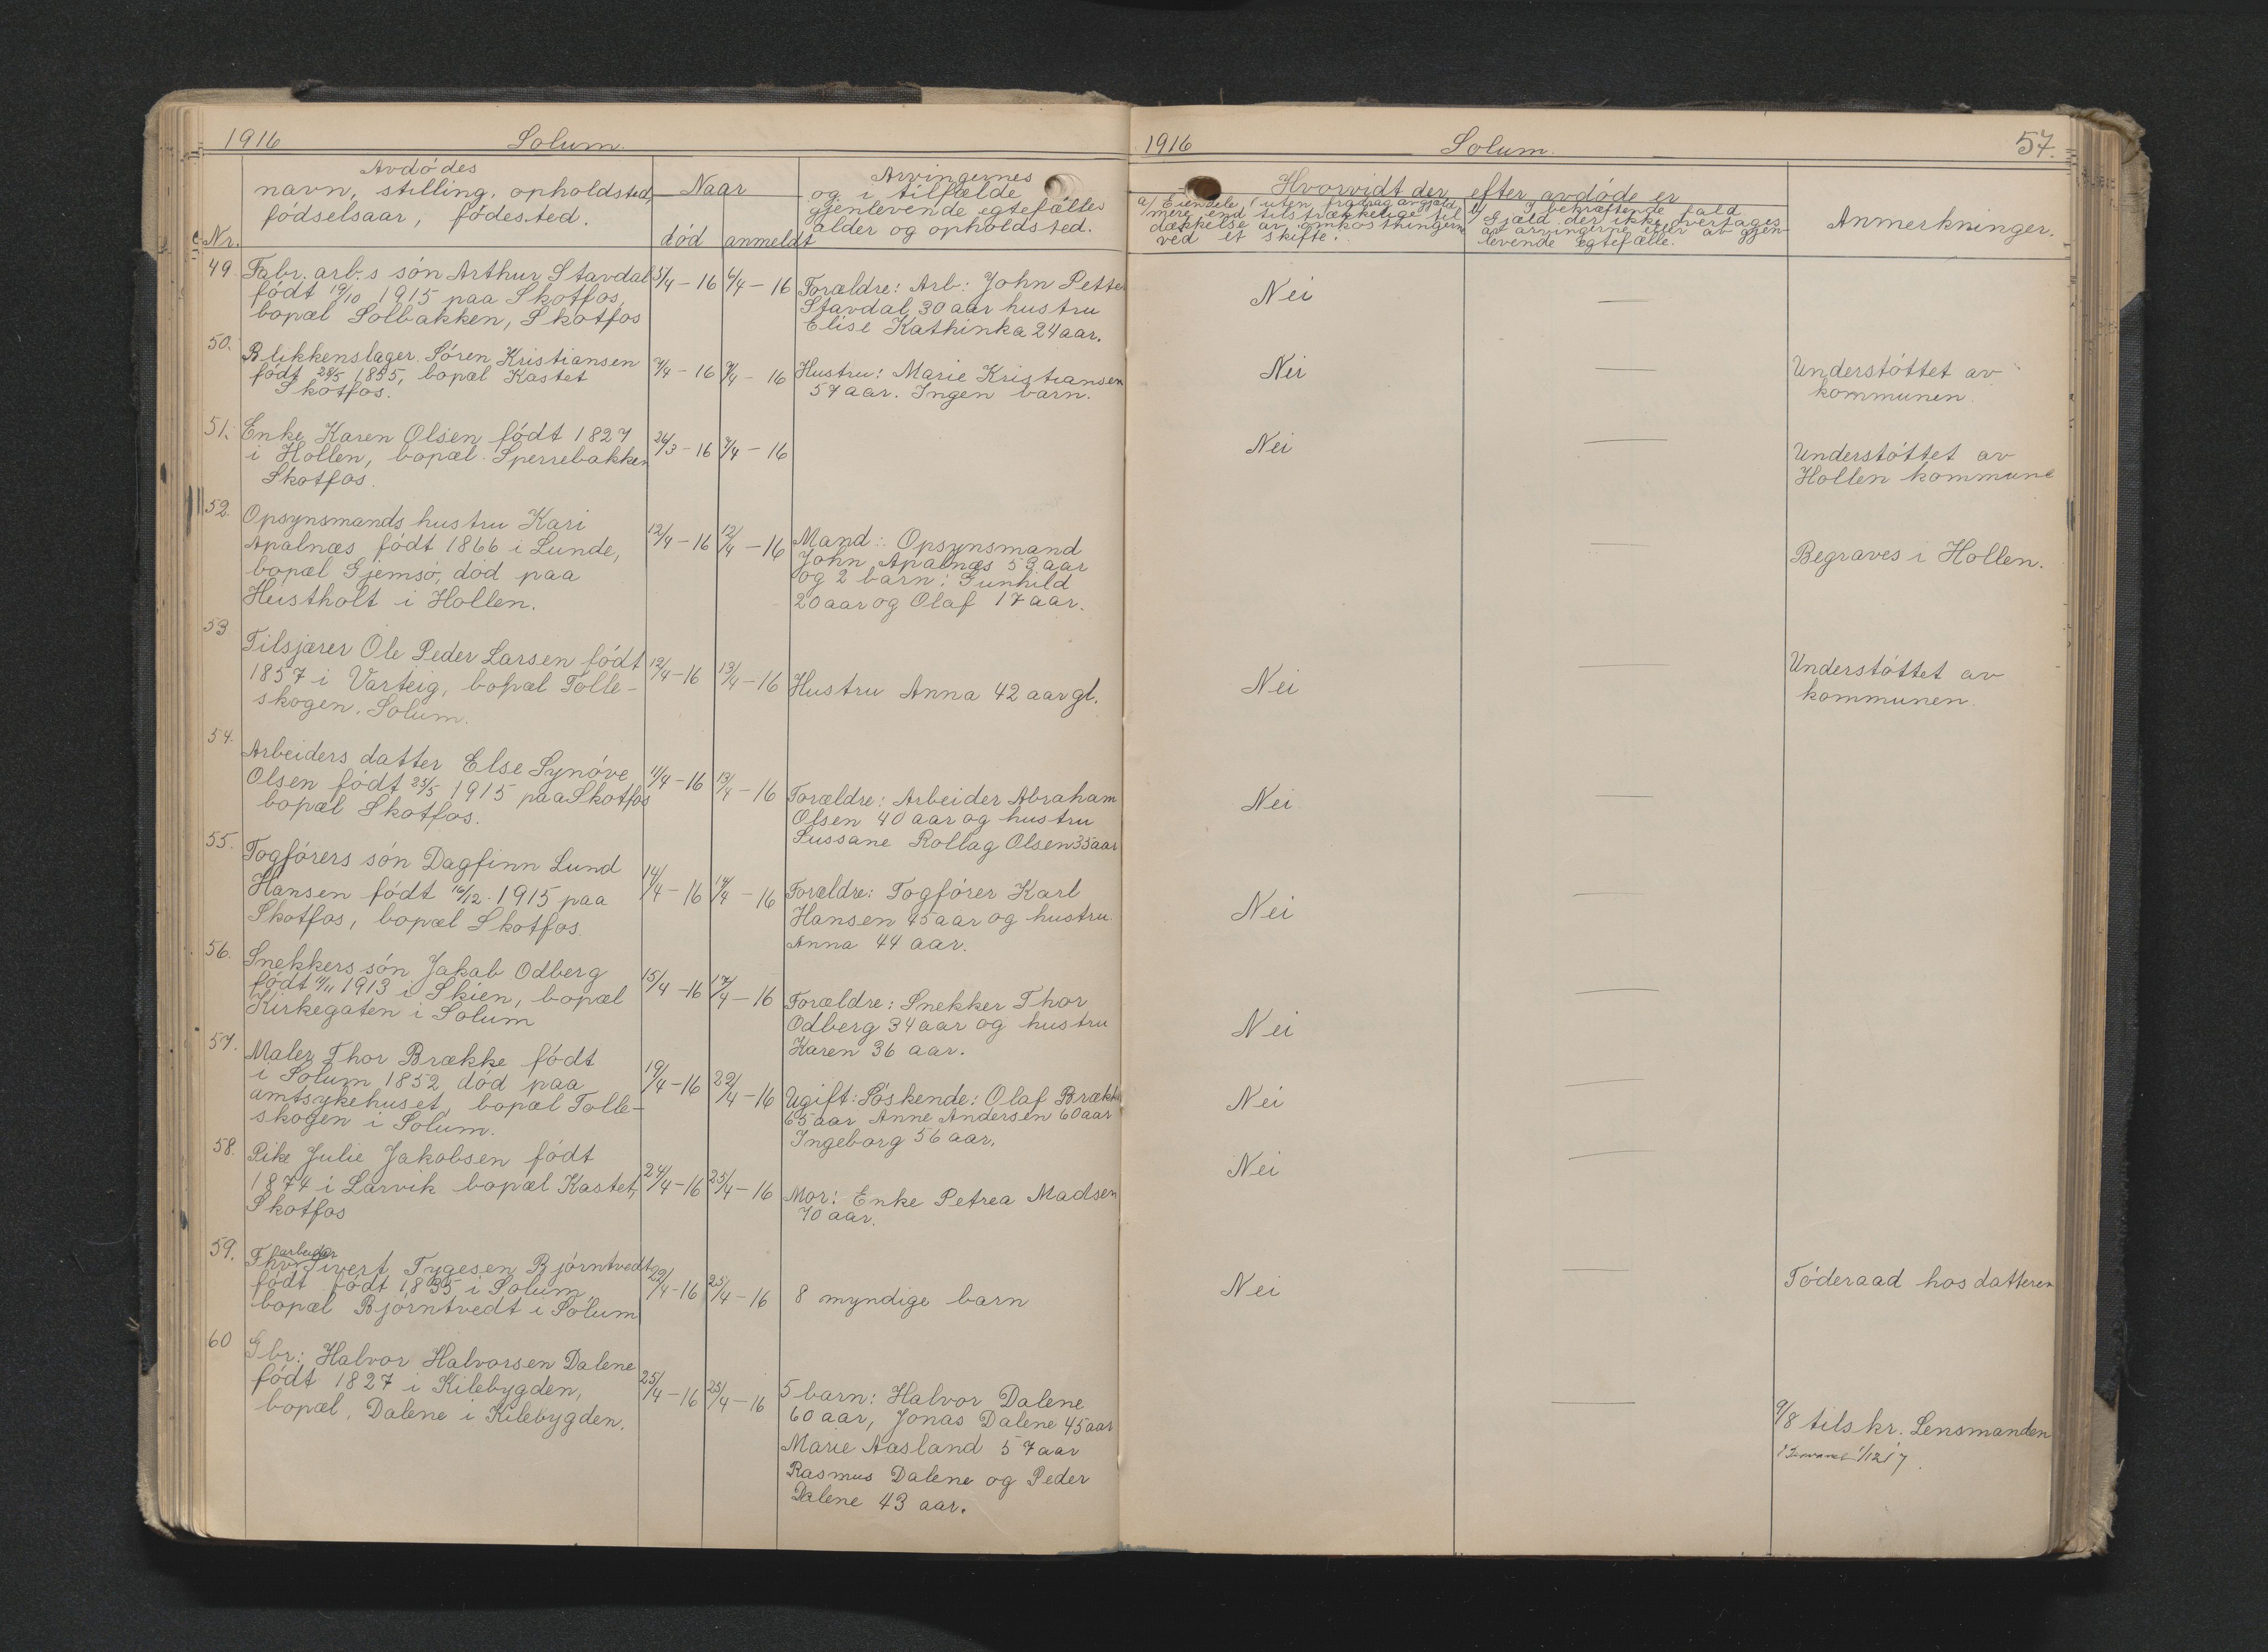 1916 Solum.
Avdødes
navn, stilling, opholdsted,
fødselsaar, fødested.
Nr.
Naar
død anmeldt
Arvingernes
og i tilfælde
gjenlevende egtefælles
alder og opholdsted.
49. Fabr. arb.s søn Arthur Stavdal
født 19/10 1915 paa Skotfos,
bopæl Solbakken, Skotfos
5/4 - 16 6/4 - 16
Forældre: Arb: John Petter
Stavdal 30 aar hustru
Elise Kathinka 24 aar.
50. Blikkenslager Søren Kristiansen
født 28/5 1855, bopæl Kastet
Skotfos.
7/4 - 16 7/4 - 16
Hustru: Marie Kristiansen
57 aar. Ingen barn.
51. Enke Karen Olsen født 1827
i Hollen, bopæl Sperrebakken
Skotfos.
26/3 - 16 7/4 - 16
52. Opsynsmands hustru Kari
Apalnæs født 1866 i Lunde,
bopæl Gjemsø, død paa
Heistholt i Hollen.
12/4 - 16 12/4 - 16
Mand: Opsynsmand
John Apalnæs 53 aar
og 2 barn: Gunhild
20 aar og Olaf 17 aar.
53 Filsjærer Ole Peder Larsen født
1857 i Varteig, bopæl Tolle-
skogen. Solum.
12/4 - 16 13/4 - 16
Hustru Anna 42 aar gl.
54. Arbeiders datter Else Synøve
Olsen født 25/5 1915 paa Skotfos
bopæl Skotfos.
11/4 - 16 13/4 - 16
Forældre: Arbeider Abraham
Olsen 40 aar og hustru
Sussane Rollag Olsen 35 aar
55. Togførers søn Dagfinn Lund
Hansen født 16/12 1915 paa
Skotfos, bopæl Skotfos.
14/4 - 16 14/4 - 16
Forældre: Togfører Karl
Hansen 45 aar og hustru
Anna 44 aar.
56. Snekkers søn Jakob Odberg
født 1913 i Skien, bopæl
Kirkegaten i Solum
15/4 - 16 17/4 - 16
Forældre: Snekker Thor
Odberg 34 aar og hustru
Karen 36 aar.
57. Maler Thor Brække født
i Solum 1852 død paa
amtsykehuset, bopæl Tolle-
skogen i Solum.
19/4 - 16 22/4 - 16
Ugift: Søskende: Olaf Brække
65 aar Anne Andersen 60 aar
Ingeborg 56 aar.
58. Pike Julie Jakobsen født
1874 i Larvik bopæl Kastet,
Skotfos
24/4 - 16 25/4 - 16
Mor: Enke Petrea Madsen
70 aar.
59. arbeider
Sivert Tygesen Bjørntvedt
født født 1835 i Solum
bopæl Bjørntvedt i Solum
22/4 - 16 25/4 - 16
8 myndige barn
60 Gbr: Halvor Halvorsen Dalene
født 1827 i Kilebygden,
bopæl, Dalene i Kilebygden.
25/4 - 16 25/4 - 16
5 barn: Halvor Dalene
60 aar, Jonas Dalene 45 aar
Marie Aasland 57 aar
Rasmus Dalene og Peder
Dalene 43 aar.
1916 Solum. 57.
Hvorvidt der efter avdøde er
a/ Eiendele, (uten fradrag av gjæld)
mere end tilstrækkelige til
dækkelse av omkostningerne
ved et skifte.
b/ I bekræftende fald
Gjæld der ikke overtages
av arvingerne eller av gjen-
levende egtefælle.
Anmerkninger.
Nei —
Nei — Understøttet av
kommunen.
Nei — Understøttet av
Hollen kommune
— Begraves i Hollen.
Nei — Understøttet av
kommunen.
Nei —
Nei —
Nei —
Nei —
Nei —
Nei — Føderaad hos datteren
— 9/8 tilskr. Lensmanden
1/12 17.